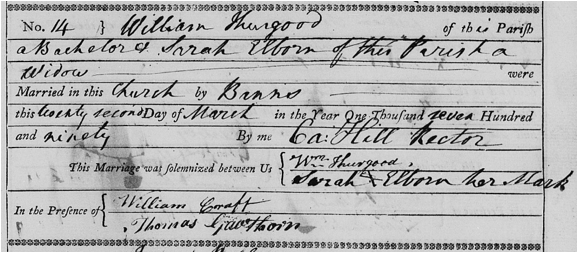 No. 14 } William Thurgood of this Parish
a Bachelor & Sarah Elborn of this Parish a
Widow were
Married in this Church by Banns
this twenty second Day of March in the Year One Thousand seven Hundred
and ninety By me Ca: Hill Rector
This Marriage was solemnized between Us { Wm Thurgood.
Sarah X Elborn her Mark
In the Presence of { William Craft
Thomas Gawthorn